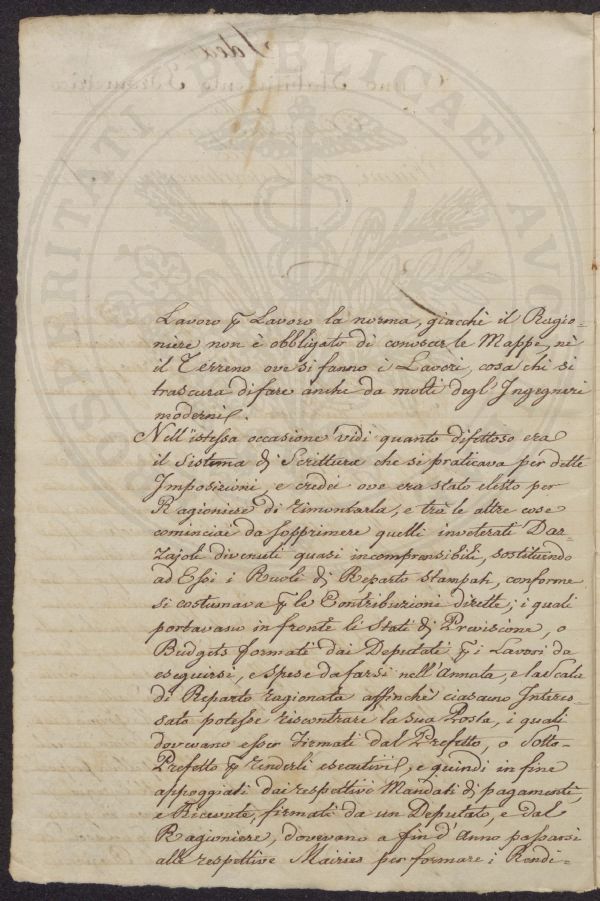 Lavoro p Lavoro la norma, giacchè il Ragio-
niere non è obbligato di conoscer le Mappe, nè
il Terreno ove si fanno i Lavori, cosa chi si
trascura di fare anche da molti degl' Ingegneri
moderni.
Nell'istessa occasione vidi quanto difettoso era
il Sistema di Scrittura che si praticava per dette
Imposizioni, e credei ove era stato eletto per
Ragioniere di rimontarla, e trà le altre cose
cominciai da sopprimere quelli inveterati Dar-
zajoli divenuti quasi incomprensibili, sostituendo
ad Essi i Ruoli di Reparto stampati, conforme
si costumava p le Contribuzioni dirette; i quali
portavano in fronte li Stati di Previsione, o
Budgets formati dai Deputati p i Lavori da
eseguirsi, e spese da farsi nell'Annata, e la Scala
di Reparto ragionata affinchè ciascuno Interes-
sato potesse riscontrare la sua Posta, i quali
dovevano esser firmati dal Prefetto, o Sotto-
Prefetto p renderli esecutivi, e quindi in fine
appoggiati dai respettivi Mandati di pagamenti,
e Ricevute, firmati da un Deputato, e dal
Ragioniere, dovevano a fin d'Anno passarsi
alle respettive Mairies per formare i Rendi-
PROSPERITATI PUBLICAE AU